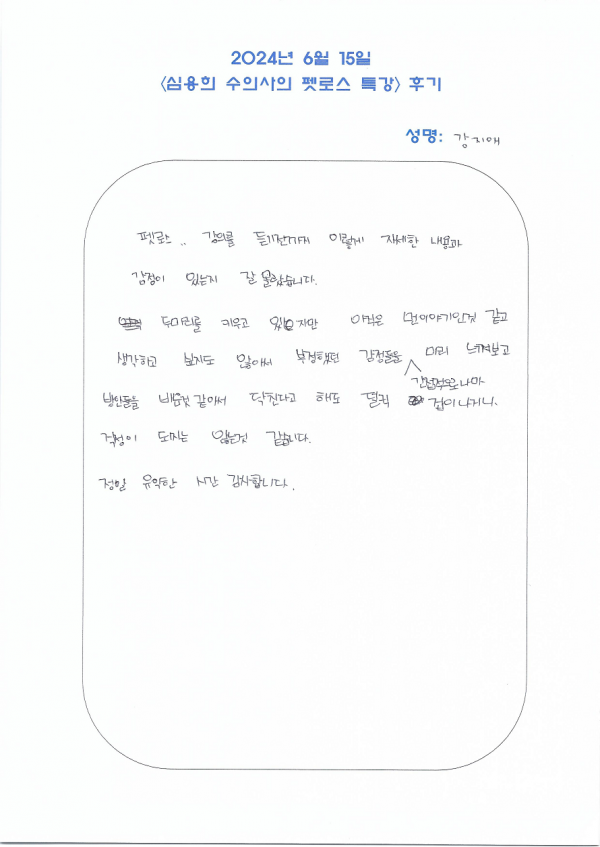 2024년 6월 15일
<심용희 수의사의 펫로스 특강> 후기
성명: 강지애
펫로스.. 강의를 듣기전까지 이렇게 자세한 내용과
감정이 있는지 잘 몰랐습니다.
두마리를 키우고 있지만 아직은 먼이야기인것 같고
생각하고 보지도 않아서 부정했던 감정들을 미리 느껴보고
간접적으로나마
방안들을 배운것 같아서 닥친다고 해도 덜컥 겁이나거나
걱정이 되지는 않는것 같습니다.
정말 유익한 시간 감사합니다.